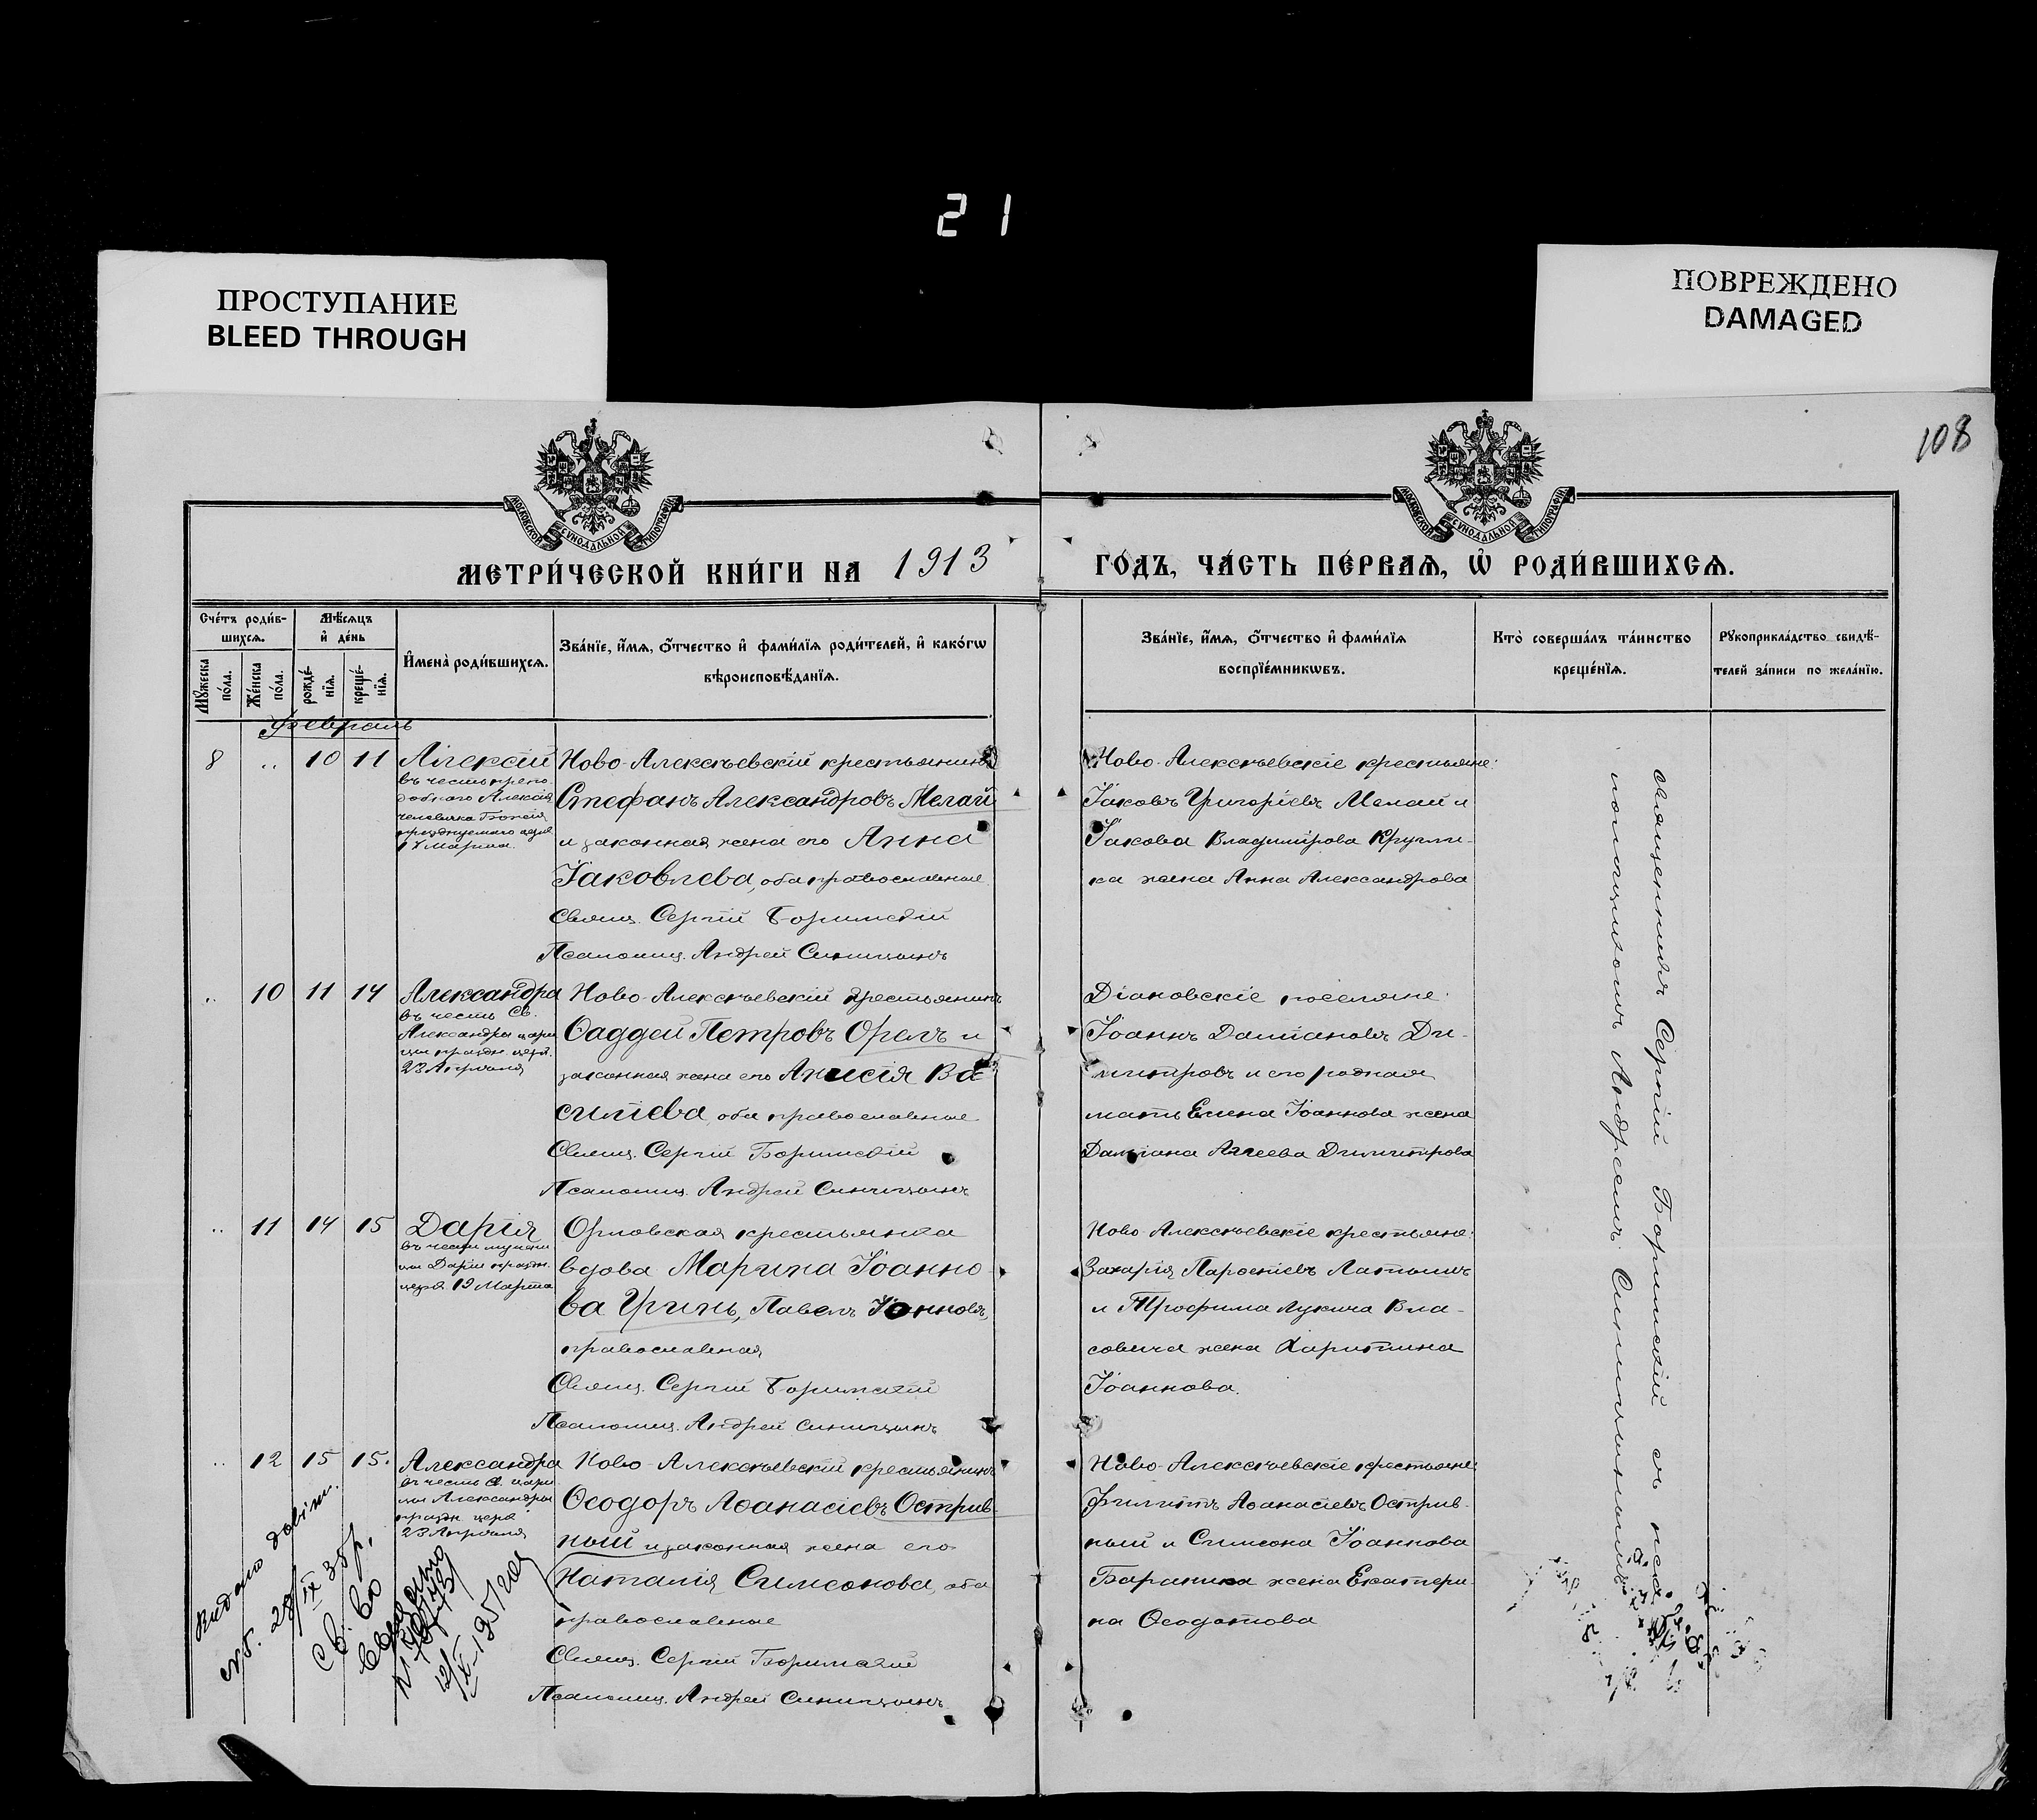 21
ПРОСТУПАНИЕ
BLEED THROUGH
ПОВРЕЖДЕНО
DAMAGED
108
МОСКОВСКОЙ СУНОДАЛЬНОЙ ТИПОГРАФІИ
МОСКОВСКОЙ СУНОДАЛЬНОЙ ТИПОГРАФІИ
МЕТРИ́ЧЕСКОЙ КНИ́ГИ НА 1913
ГО́ДЪ, ЧА́СТЬ ПЕ́РВАѦ, Ѡ҆ РОДИ́ВШИХСѦ.
Сче́тъ роди́в-
шихсѧ.
Мꙋ́жеска по́ла.
Же́нска по́ла.
Мѣ́сяцъ
и҆ де́нь
рожде́-
нїѧ.
креще́-
нїѧ.
И҆мена̀ роди́вшихсѧ.
Зва́нїе, и҆́мѧ, ѻ҆́тчество и҆ фами́лїѧ роди́телей, и҆ како́гѡ
вѣроисповѣ́данїѧ.
Зва́нїе, и҆́мѧ, ѻ҆́тчество и҆ фами́лїѧ
воспрїе́мникѡвъ.
Кто̀ соверша́лъ та́инство
креще́нїѧ.
Рꙋкоприкла́дство свидѣ́-
телей за́писи по жела́нїю.
Февраль
8 .. 10 11
Алексій
въ честь препо
добнаго Алексія
человѣка Божія
празднуемаго церк.
17 Марта.
Ново-Алексѣевскій крестьянинъ
Стефанъ Александровъ Мелай
и законная жена его Анна
Іаковлева, оба православные
Свящ. Сергій Боримскій
Псаломщ. Андрей Синицынъ
Ново-Алексѣевскіе крестьяне:
Іаковъ Григоріевъ Мелай и
Іакова Владимірова Кругли-
ка жена Анна Александрова
.. 10 11 14
Александра
въ честь Св.
Александры цари
цы праздн. церк.
23 Апрѣля
Ново-Алексѣевскій крестьянинъ
Ѳаддей Петровъ Орелъ и
законная жена его Анисія Ва
силіева, оба православные
Свящ. Сергій Боримскій
Псаломщ. Андрей Синицынъ
Діановскіе поселяне:
Іоаннъ Даміановъ Ди-
митровъ и его родная
мать Елена Іоаннова жена
Даміана Агеева Димитрова
.. 11 14 15
Дарія
въ честь мучени
цы Даріи праздн.
церк. 19 Марта
Орловская крестьянка
вдова Марина Іоанно-
ва Гринь, Павелъ Іоннова,
православная
Свящ. Сергій Боримскій
Псаломщ. Андрей Синицынъ
Ново Алексѣевскіе крестьяне:
Захарія Пароеніевъ Латышъ
и Трофима Лукича Вла-
совича жена Харитина
Іоаннова.
.. 12 15 15.
Александра
въ честь св. цари
цы Александры
праздн. церк.
23 Апрѣля
Ново-Алексѣевскій крестьянинъ
Ѳеодоръ Аѳанасіевъ Острив-
ный и законная жена его
Наталія Симеонова, оба
православные
Свящ. Сергій Боримскій
Псаломщ. Андрей Синицынъ
Ново-Алексѣевскіе крестьяне:
Филиппъ Аѳанасіевъ Острив-
ный и Симеона Іоаннова
Бараника жена Екатери-
на Ѳеодотова
Священникъ Сергій Боримскій съ пса-
ломщикомъ Андреемъ Синицынымъ
Видано довідк.
28/IX 35р.
св. во
12/IX-1951 года